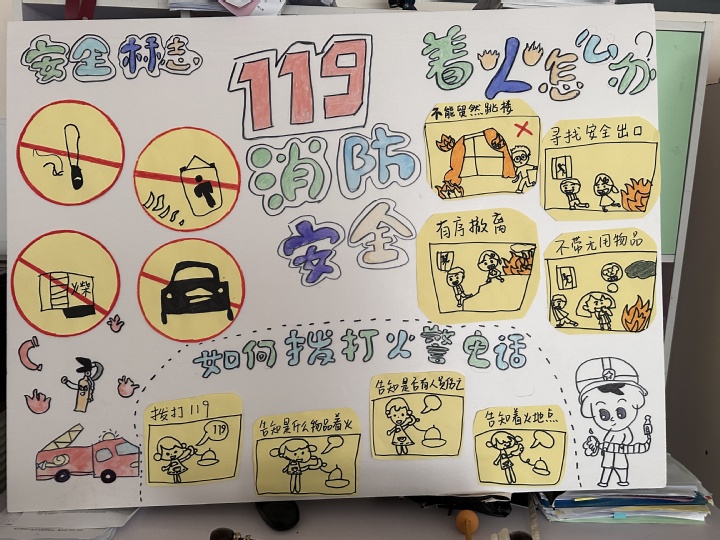 安全标志
119
消防
安全
着火怎么办?
不能贸然跳楼
寻找安全出口
有房撤离
不带无用物品
柴
如何拨打火警电话
拨打119
119
告知是什么物品着火
告知是否有人员伤亡
告知着火地点